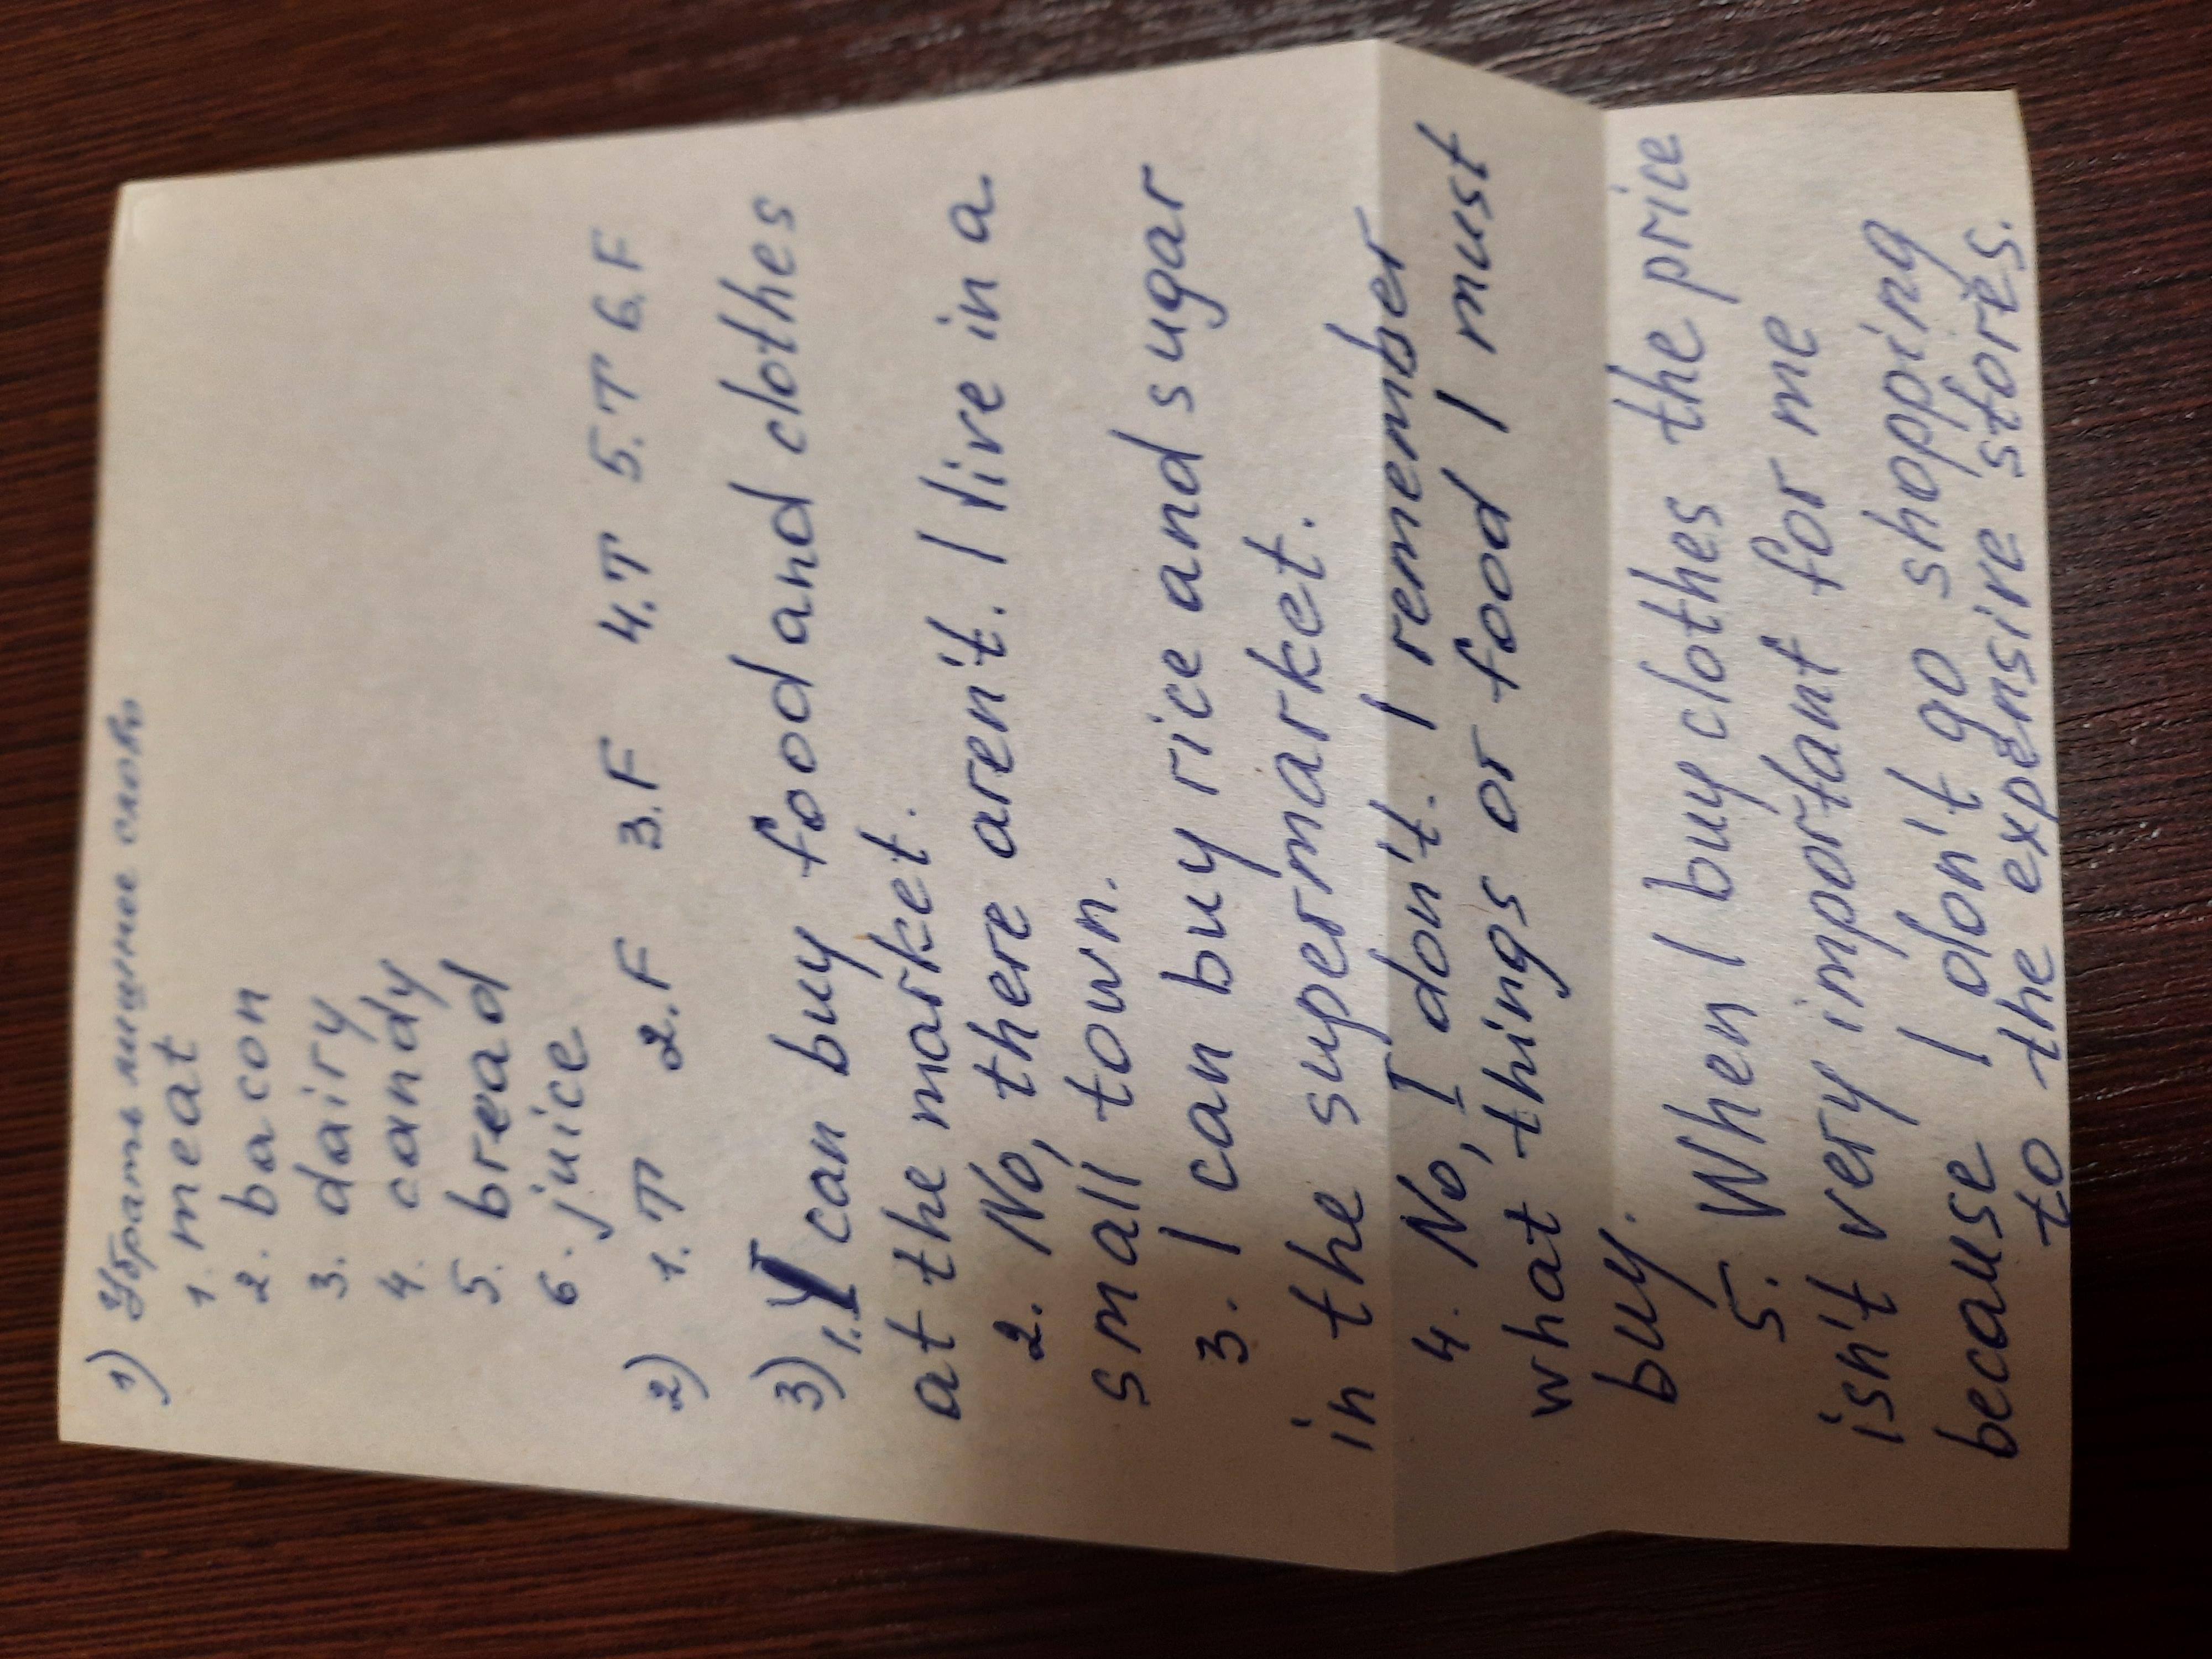 1) Убрать лишнее слово
1. meat
2. bacon
3. dairy
4. candy
5. bread
6. juice
2) 1. T 2. F 3. F 4. T 5. T 6. F
3) 1. I can buy food and clothes
at the market.
2. No, there aren't. I live in a
small town.
3. I can buy rice and sugar
in the supermarket.
4. No, I don't. I remember
what things or food I must
buy.
5. When I buy clothes the price
isn't very important for me
because I don't go shopping
to the expensive stores.